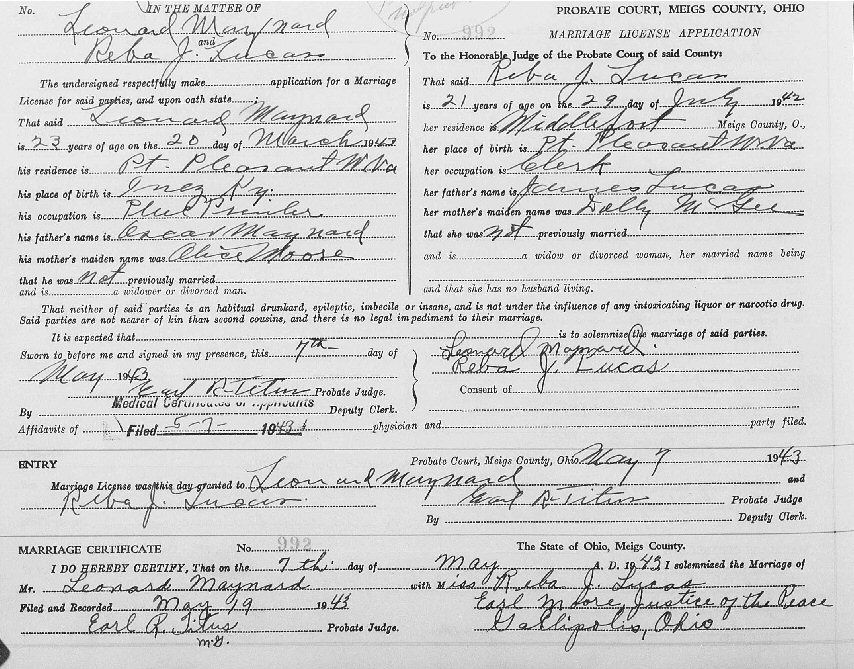 No. IN THE MATTER OF
Leonard Maynard
and
Reba J. Lucas
The undersigned respectfully make application for a Marriage
License for said parties, and upon oath state :
That said Leonard Maynard
is 23 years of age on the 20 day of March 1943
his residence is Pt. Pleasant W.Va
his place of birth is Inez Ky.
his occupation is
his father's name is Oscar Maynard
his mother's maiden name was Alice Moore
that he was not previously married
and is a widower or divorced man.
PROBATE COURT, MEIGS COUNTY, OHIO
No. 992 MARRIAGE LICENSE APPLICATION
To the Honorable Judge of the Probate Court of said County:
That said Reba J. Lucas
is 21 years of age on the 29 day of July 1942
her residence is Middleport Meigs County, O.,
her place of birth is Pt Pleasant W.Va
her occupation is Clerk
her father's name is James Lucas
her mother's maiden name was Dolly McGee
that she was not previously married
and is a widow or divorced woman, her married name being
and that she has no husband living.
That neither of said parties is an habitual drunkard, epileptic, imbecile or insane, and is not under the influence of any intoxicating liquor or narcotic drug.
Said parties are not nearer of kin than second cousins, and there is no legal impediment to their marriage.
It is expected that is to solemnize the marriage of said parties.
Sworn to before me and signed in my presence, this 7th day of
May 1943
Earl R. Titus Probate Judge.
By Deputy Clerk.
Leonard Maynard.
Reba J. Lucas
Consent of
Medical Certificates of Applicants
Affidavits of physician and party filed.
Filed 5-7- 1943
ENTRY Probate Court, Meigs County, Ohio May 7 1943
Marriage License was this day granted to Leonard Maynard and
Reba J. Lucas Earl R. Titus Probate Judge
By Deputy Clerk.
MARRIAGE CERTIFICATE No. 992 The State of Ohio, Meigs County.
I DO HEREBY CERTIFY, That on the 7th. day of May A. D. 1943 I solemnized the Marriage of
Mr. Leonard Maynard with Miss Reba J. Lucas
Filed and Recorded May 19 1943 Earl Moore, Justice of the Peace
Earl R. Titus Probate Judge. Gallipolis, Ohio
m.G.